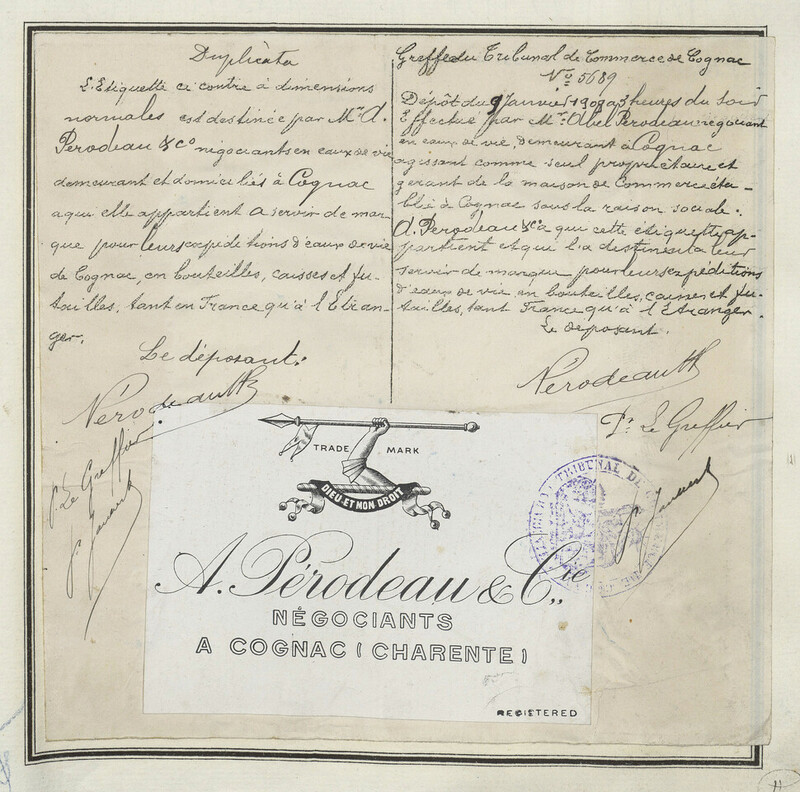 Duplicata
L'Etiquette ci contre à dimensions
normales est destinée par Mr A.
Perodeau & Co négociants en eaux de vie
demeurant et domiciliés à Cognac
a qui elle appartient a servir de mar-
que pour leurs expéditions d'eaux de vie
de Cognac, en bouteilles, caisses et fu-
tailles, tant en France qu'à l'Etran-
ger.
Le déposant:
Pérodeau
P. Le Greffier
Greffe du Tribunal de Commerce de Cognac
No 5689
Dépôt du 9 Janvier 1909 a 3 heures du soir
Effectué par Mr. Abel Perodeau négociant
en eaux de vie, demeurant à Cognac
agissant comme seul propriétaire et
gerant de la maison de Commerce éta-
blie à Cognac sous la raison sociale:
A. Perodeau & Co a qui cette étiquette ap-
partient et qui l'a destinent a leur
servir de marque pour leurs expéditions
d'eaux de vie en bouteilles, caisses et fu-
tailles, tant France qu'à l'Etranger.
Le déposant.
Pérodeau
Pr. Le Greffier
TRADE MARK
DIEU ET MON DROIT
A. Pérodeau & Cie
NÉGOCIANTS
A COGNAC (CHARENTE)
REGISTERED
TRIBUNAL DE